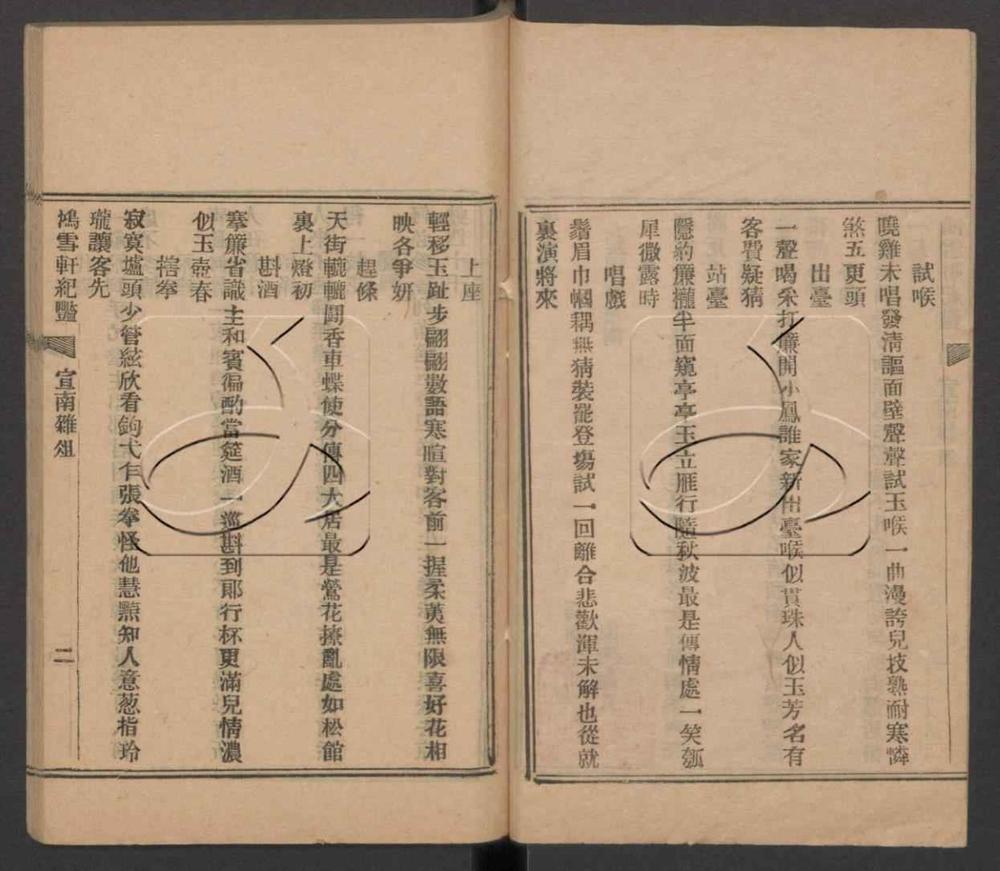 試喉
曉雞未唱發清謳面壁聲聲試玉喉一曲漫誇兒技熟耐寒憐
煞五更頭
出臺
一聲喝采打簾開小鳳誰家新出臺喉似貫珠人似玉芳名有
客費疑猜
站臺
隱約簾櫳半面窺亭亭玉立雁行隨秋波最是傳情處一笑瓠
犀微露時
唱戲
鬚眉巾幗耦無猜裝罷登場試一回離合悲歡渾未解也從就
裏演將來
上座
輕移玉趾步翩翩數語寒暄對客前一握柔荑無限喜好花相
映各爭妍
趕條
天街轆轆鬬香車蝶使分傳四大居最是鶯花撩亂處如松館
裏上燈初
斟酒
搴簾省識主和賓徧酌當筵酒一巡斟到郎行杯更滿兒情濃
似玉壺春
搳拳
寂寞壚頭少管絃欣看鉤弋乍張拳怪他慧黠知人意葱指玲
瓏讓客先
鴻雪軒紀豔
宣南雜俎
二